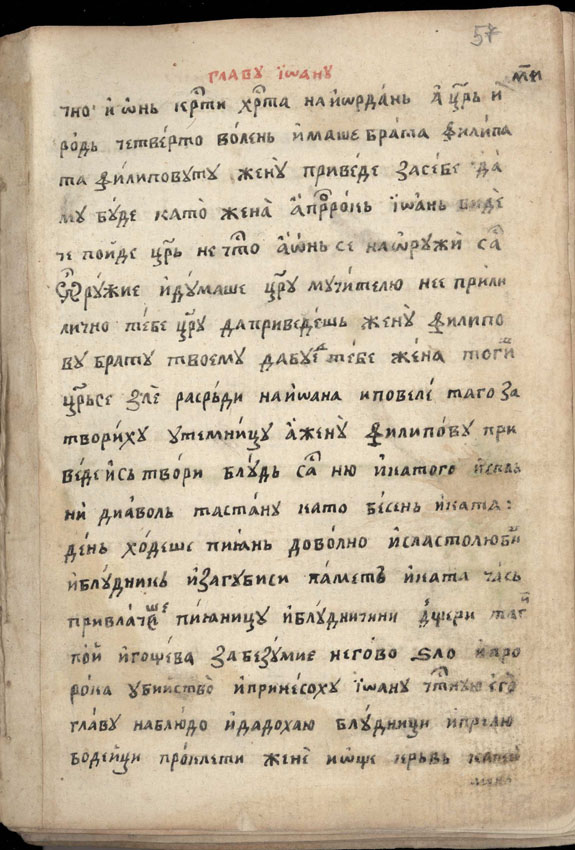 57
главу їѡану
чно и ѡнь крⷭ҇ти хрⷭ҇та на їѡрдань а црь и
родь четверто волень имаше брата филипа
та филиповуту жену приведе засебе да
му буде като жена а пророкь їѡань виде
че пойде црь нечⷭ҇то а ѡнь се наѡружи са
ѡружие и думаше цру мучителю нее прили
лично тебе цру да приведешь жену филипо
ву брату твоему да буде тебе жена тогⷣи
црьсе зле расрьди на иѡана и повеле таго за
твориху утемницу а жену филипову при
веде и сь твори блудь са ню и катого
ни диаволь та стану като бесень и ката
день ходеше пиянь доволно и сластолюби
и блудникь и загубиси паметь и ката чась
привлачаше пияницу и блудничини дщери
пой и гощева за безумие негово ѕло и про
рока убийство и принесоху їѡану чⷭ҇тную его
главу на блюдо и дадохаю блудници и прелю
бодейци проклети жене и ѡще кервь